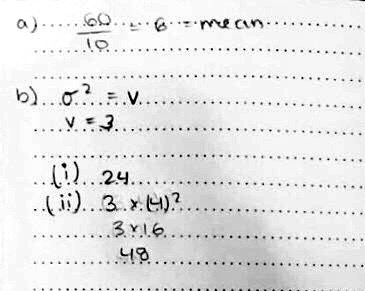 a) 60/10 = 6 = mean
b) σ² = v
v = 3
(i) 24
(ii) 3 × (4)²
3×16
48